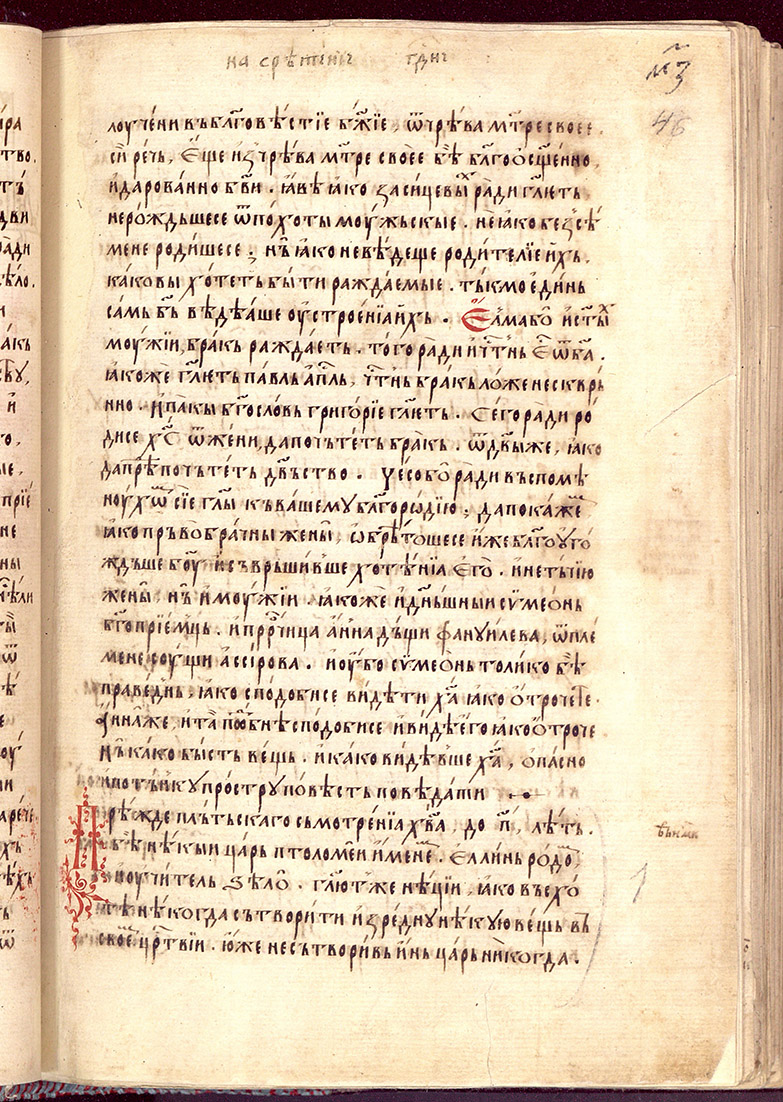 на срѣтенїе гдне
м҃з
46
лоучени въ бл҃говѣстїе бж҃їе, ѿ чрѣва мт҃ре своее.
сїи рѣчь, Еще из чрѣва мт҃ре своее бѣ бл҃гоосщ҃енно,
и дарованно бв҃и . іавѣ іако за сицевыⷯ ради гл҃ѥть
нерождьшесе ѿ похоты моужьскые . не іако без сѣ
мене родишесе ; нь҃ іако невѣдеще родителїе ихь.
каковы хотеть быти раждаемые . тькмо единь
самь бь҃ вѣдѣаше оустроенїа ихь . Єлма бо и истыⷯ
моужїи, бракь раждаеть . того ради и чт҃нь Е ѿ ба҃ .
іакоже гл҃ѥть павль ап҃ль, чт҃нь бракь и ложе нескврь
нно . и пакы бг҃ословь григорїе гл҃ѥть . Сего ради ро
дисе хс҃ ѿ жени, да почьтеть бракь . ѿ дв҃ыже, іако
да прѣпочьтеть дв҃ьство . Чесо бо ради въспомѣ
ноухѡⷨ сїе гл҃ы къ вашему бл҃городїю ; да покажеⷨ
іако пръвобрачны жены , ѡбрѣтошесе иже бл҃гооуго
ждьше бо҃у и съврьшивше хотѣнїа его . и нетьїю
жены нь҃ и моужїи . іакоже и дн҃ьшныи сѵмеѡнь
бг҃опрїемць . и прⷪрчица анна дъщи фануилева, ѿ пле
мене соущи ассірова . и оубо сѵмеѡнь толико бѣ
праведнь, іако сподобисе видѣти ха҃ іако отрочете.
Ѻ инаже, и та поⷣбнѣ сподобисе и видѣ его іако отроче
нь҃ како бысть вещь . и како видѣвше ха҃ , опасно
ипотънкупростру повѣсть поведати
Прѣжде пльтьскаго сьмотренїа хв҃а, до т҃ лѣть .
бѣ нѣкыи царь птоломеи именеⷨ . еллинь родоⷨ,
и оучитель ѕѣло . гл҃ютже нѣцїи, іако въсхо
тѣ нѣкогда сътворити изредну нѣкую вещь въ
своеⷨ црⷭтвїи . юже несътвори инь царь никогда .